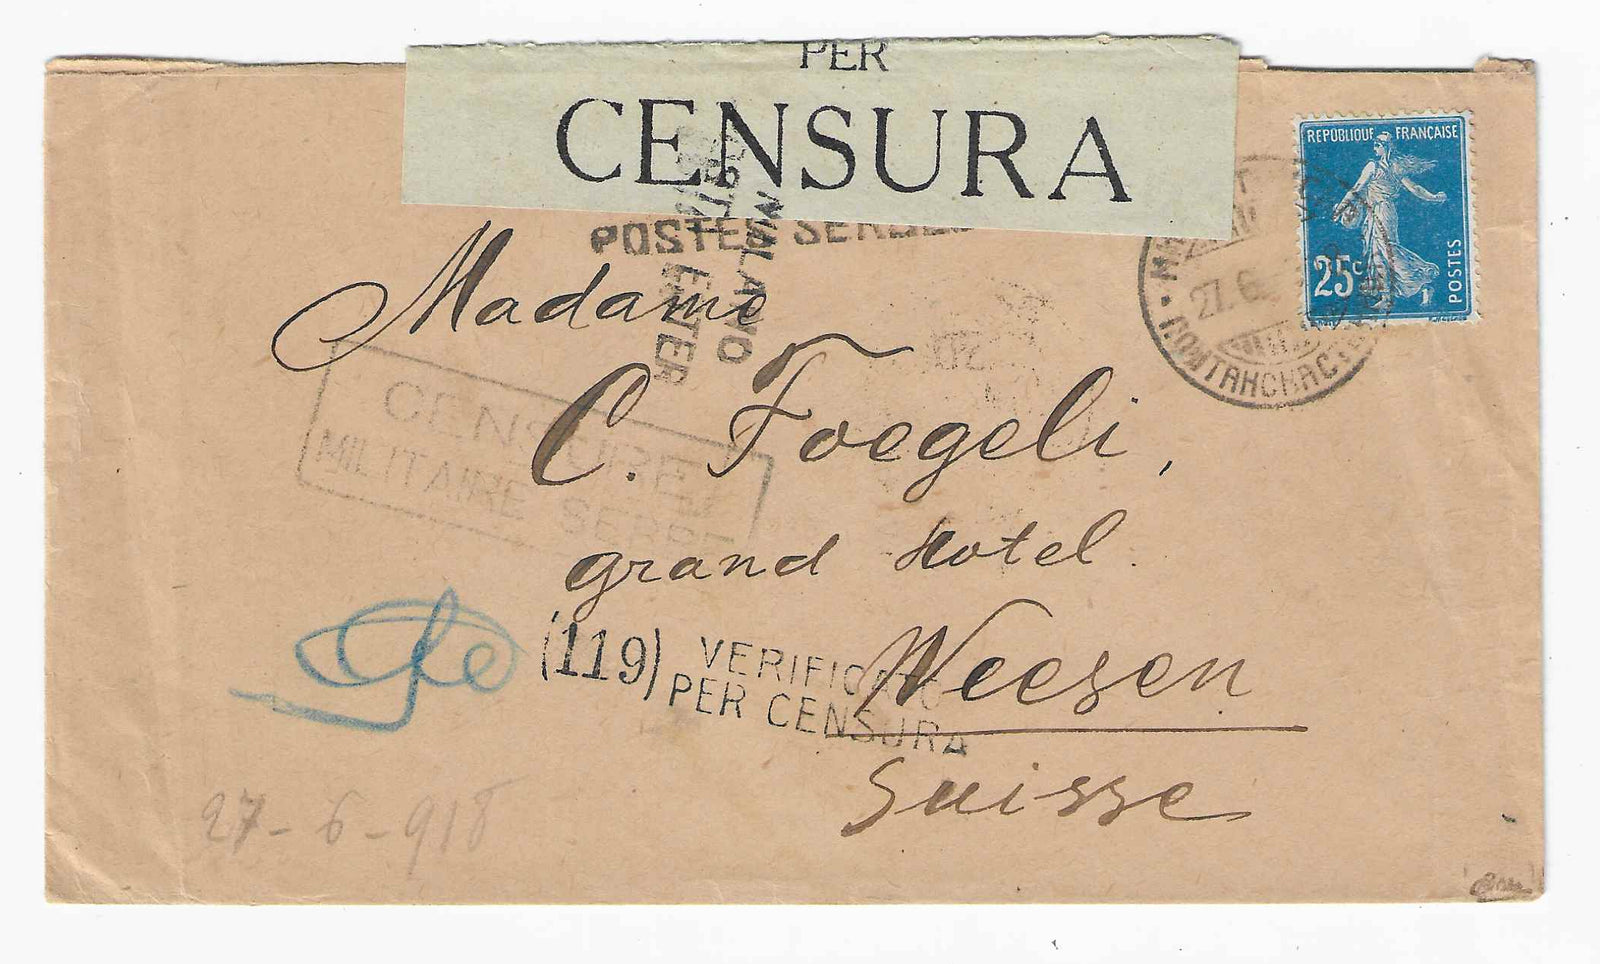 PER
CENSURA
REPUBLIQUE FRANÇAISE
25c
POSTES
POSTES
MILANO
ESTER
27.6
Madame
C. Foegeli,
grand Hotel.
Weesen
Suisse
CENSURE
MILITAIRE SERBE
(119)
VERIFICATO
PER CENSURA
27-6-918